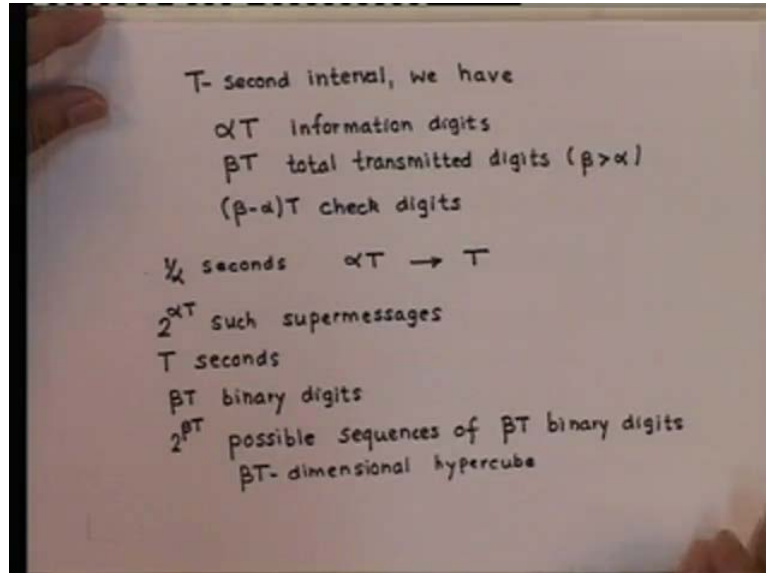 T- second interval, we have
αT information digits
βT total transmitted digits (β>α)
(β-α)T check digits
1/α seconds αT → T
2^αT such supermessages
T seconds
βT binary digits
2^βT possible sequences of βT binary digits
βT- dimensional hypercube